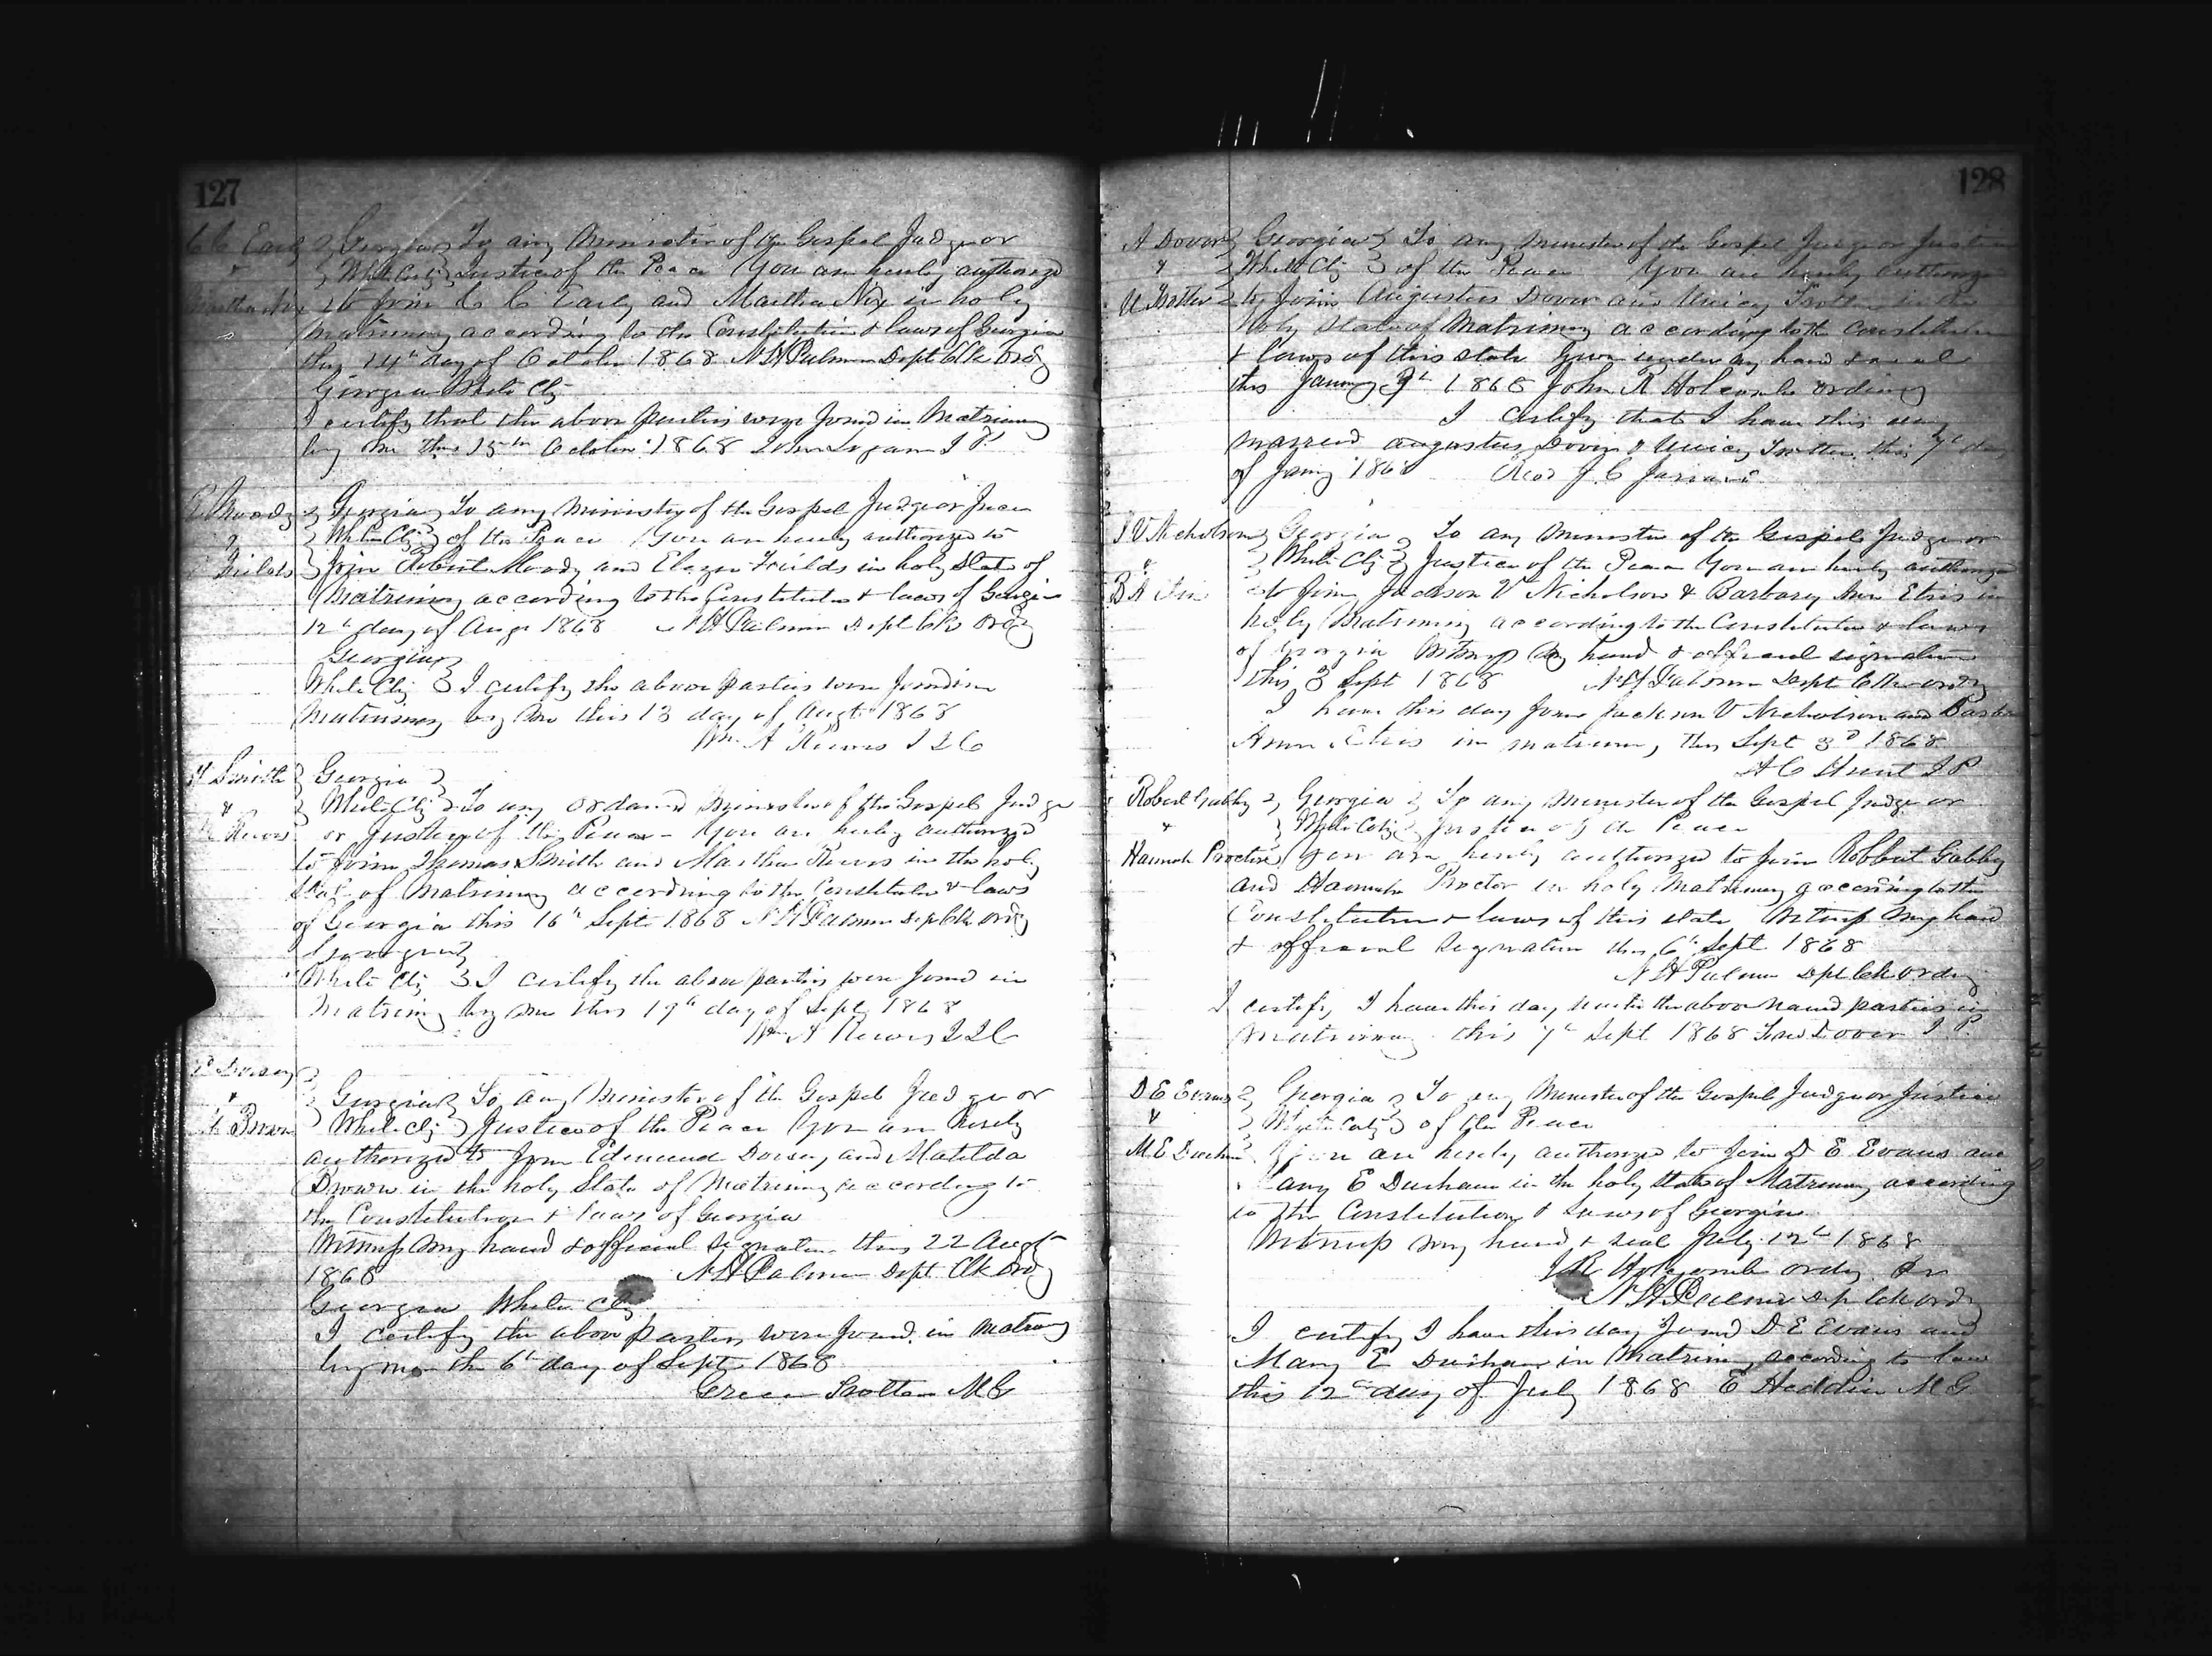 127
C C Early } Georgia } To any Minister of the Gospel Judge or
& } White Cty } Justice of the Peace You are hereby authorized
Martha Nix } to join C C Early and Martha Nix in holy
Matrimony according to the Constitution & laws of Georgia
this 14th day of October 1868 N H Palmer Dept Clk Ordy
Georgia White Cty
I certify that the above parties were joind in Matrimony
by me this 15th October 1868 John Logan J P
R Moody } Georgia } To any Minister of the Gospel Judge or Juce
& } White Cty } of the Peace You are hereby authorized to
E Fields } Join Robert Moody and Elizer Feilds in holy State of
Matrimony according to the Constitution & laws of Georgia
12th day of Aug 1868 N H Palmer Dept Clk Ordy
Georgia }
White Cty } I certify the above parties were joind in
Matrimony by me this 13 day of Augt 1868
Wm A Reeves J I C
Smith } Georgia }
& } White Cty } To any Ordaned Minister of the Gospel Judge
M Reevs or Justice of the Peace - You are hereby authorized
to join Thomas Smith and Martha Reevs in the holy
State of Matrimony according to the Constitution & laws
of Georgia this 16th Sept 1868 N H Palmer Dep Clk Ordy
Georgia }
White Cty } I certify the above parties were joind in
Matrimony by me this 17th day of Sept 1868
Wm A Reeves J I C
E Dorsey }
& } Georgia } To any Minister of the Gospel Judge or
M Brown } White Cty } Justice of the Peace You are hereby
authorized to join Edmund Dorsey and Matilda
Brown in the holy State of Matrimony according to
the Constitution & laws of Georgia
Witness my hand & official signature this 22 Augt
1868 N H Palmer Dept Clk Ordy
Georgia White Cty
I certify the above parties were joind in Matrimony
by me the 6th day of Sept 1868
Green Trotter M G
128
A Dover } Georgia } To any Minister of the Gospel Judge or Justice
& } White Cty } of the Peace You are hereby authorized
U Trotter } to join Augustus Dover and Unicy Trotter in the
holy State of Matrimony according to the Constitution
& laws of this state Given under my hand & seal
this January 9th 1868 John R Holcomb Ordinary
I certify that I have this day
married Augustus Dover & Unicy Trotter this 9th day
of Jany 1868 Revd J C
J V Nicholson } Georgia } To any Minister of the Gospel Judge or
& } White Cty } Justice of the Peace You are hereby authorized
B A } to join Jackson V Nicholson & Barbary Ann Etris in
holy Matrimony according to the Constitution & laws
of Georgia Witness my hand & official signature
this 3 Sept 1868 N H Palmer Dept Clk Ordy
I have this day joind Jackson V Nicholson and Barba
Ann Etris in matrimony this Sept 3d 1868
A C Hunt J P
Robert Gabby } Georgia } To any Minister of the Gospel Judge or
& } White Coty } Justice of the Peace
Hannah Procter } You are hereby authorized to join Robbert Gabby
and Hannah Proctor in holy Matrimony according to the
Constitution & laws of this state Witness my hand
& official signature this 6th Sept 1868
N H Palmer Dpt Clk Ordy
I certify I have this day united the above named parties in
Matrimony this 7th Sept 1868 Dover J P
D E Evans } Georgia } To any Minister of the Gospel Judge or Justice
& } White Coty } of the Peace
M E Durham } You are hereby authorized to join D E Evans and
Mary E Durham in the holy State of Matrimony according
to the Constitution & Laws of Georgia
Witness my hand & seal July 12th 1868
J R Holcomb Ordy Pr
N H Palmer Dep Clk Ordy
I certify I have this day Joind D E Evans and
Mary E Durham in Matrimony according to law
this 12th day of July 1868 E Heddin M G